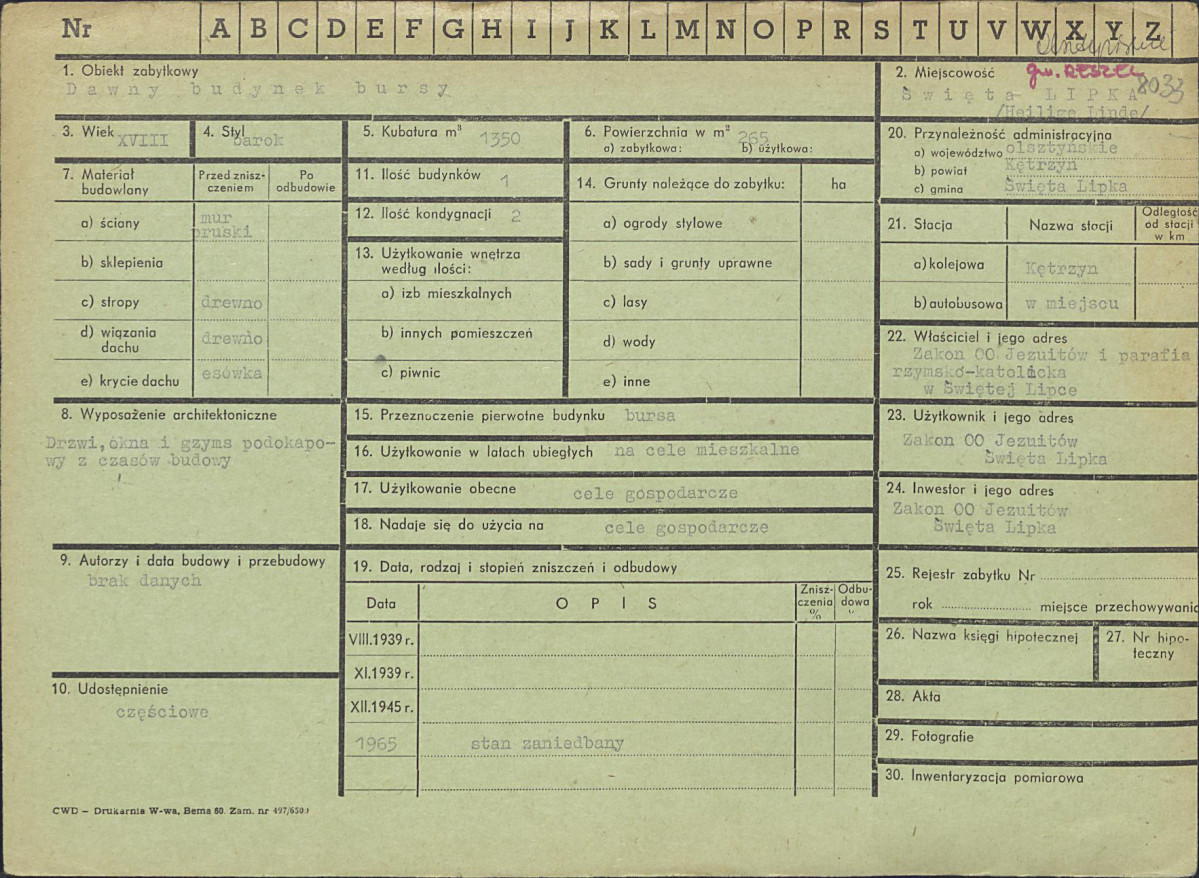 Nr A B C D E F G H I J K L M N O P R S T U V W X Y Z
1. Obiekt zabytkowy
Dawny budynek bursy
2. Miejscowość
gm. RESZEL
8033
Święta LIPKA
/Heilige Linde/
3. Wiek XVIII
4. Styl barok
5. Kubatura m³ 1350
6. Powierzchnia w m² 265
a) zabytkowa: b) użytkowa:
20. Przynależność administracyjna
a) województwo olsztyńskie
b) powiat Kętrzyn
c) gmina Święta Lipka
7. Materiał budowlany
Przed znisz-
czeniem
Po
odbudowie
a) ściany mur
pruski
b) sklepienia
c) stropy drewno
d) wiązania
dachu drewno
e) krycie dachu esówka
11. Ilość budynków 1
12. Ilość kondygnacji 2
13. Użytkowanie wnętrza
według ilości:
a) izb mieszkalnych
b) innych pomieszczeń
c) piwnic
14. Grunty należące do zabytku: ha
a) ogrody stylowe
b) sady i grunty uprawne
c) lasy
d) wody
e) inne
21. Stacja
Nazwa stacji
Odległość
od stacji
w km
a) kolejowa Kętrzyn
b) autobusowa w miejscu
22. Właściciel i jego adres
Zakon OO Jezuitów i parafia
rzymsko-katolicka
w Świętej Lipce
8. Wyposażenie architektoniczne
Drzwi, okna i gzyms podokapo-
wy z czasów budowy
15. Przeznaczenie pierwotne budynku bursa
16. Użytkowanie w latach ubiegłych na cele mieszkalne
17. Użytkowanie obecne cele gospodarcze
18. Nadaje się do użycia na cele gospodarcze
23. Użytkownik i jego adres
Zakon OO Jezuitów
Święta Lipka
24. Inwestor i jego adres
Zakon OO Jezuitów
Święta Lipka
9. Autorzy i data budowy i przebudowy
brak danych
19. Data, rodzaj i stopień zniszczeń i odbudowy
Data
O P I S
Znisz-
czenia
%
Odbu-
dowa
VIII.1939 r.
XI.1939 r.
XII.1945 r.
1965 stan zaniedbany
10. Udostępnienie
częściowe
25. Rejestr zabytku Nr
rok miejsce przechowywania
26. Nazwa księgi hipotecznej
27. Nr hipo-
teczny
28. Akta
29. Fotografie
30. Inwentaryzacja pomiarowa
CWD – Drukarnia W-wa, Bema 60. Zam. nr 497/650